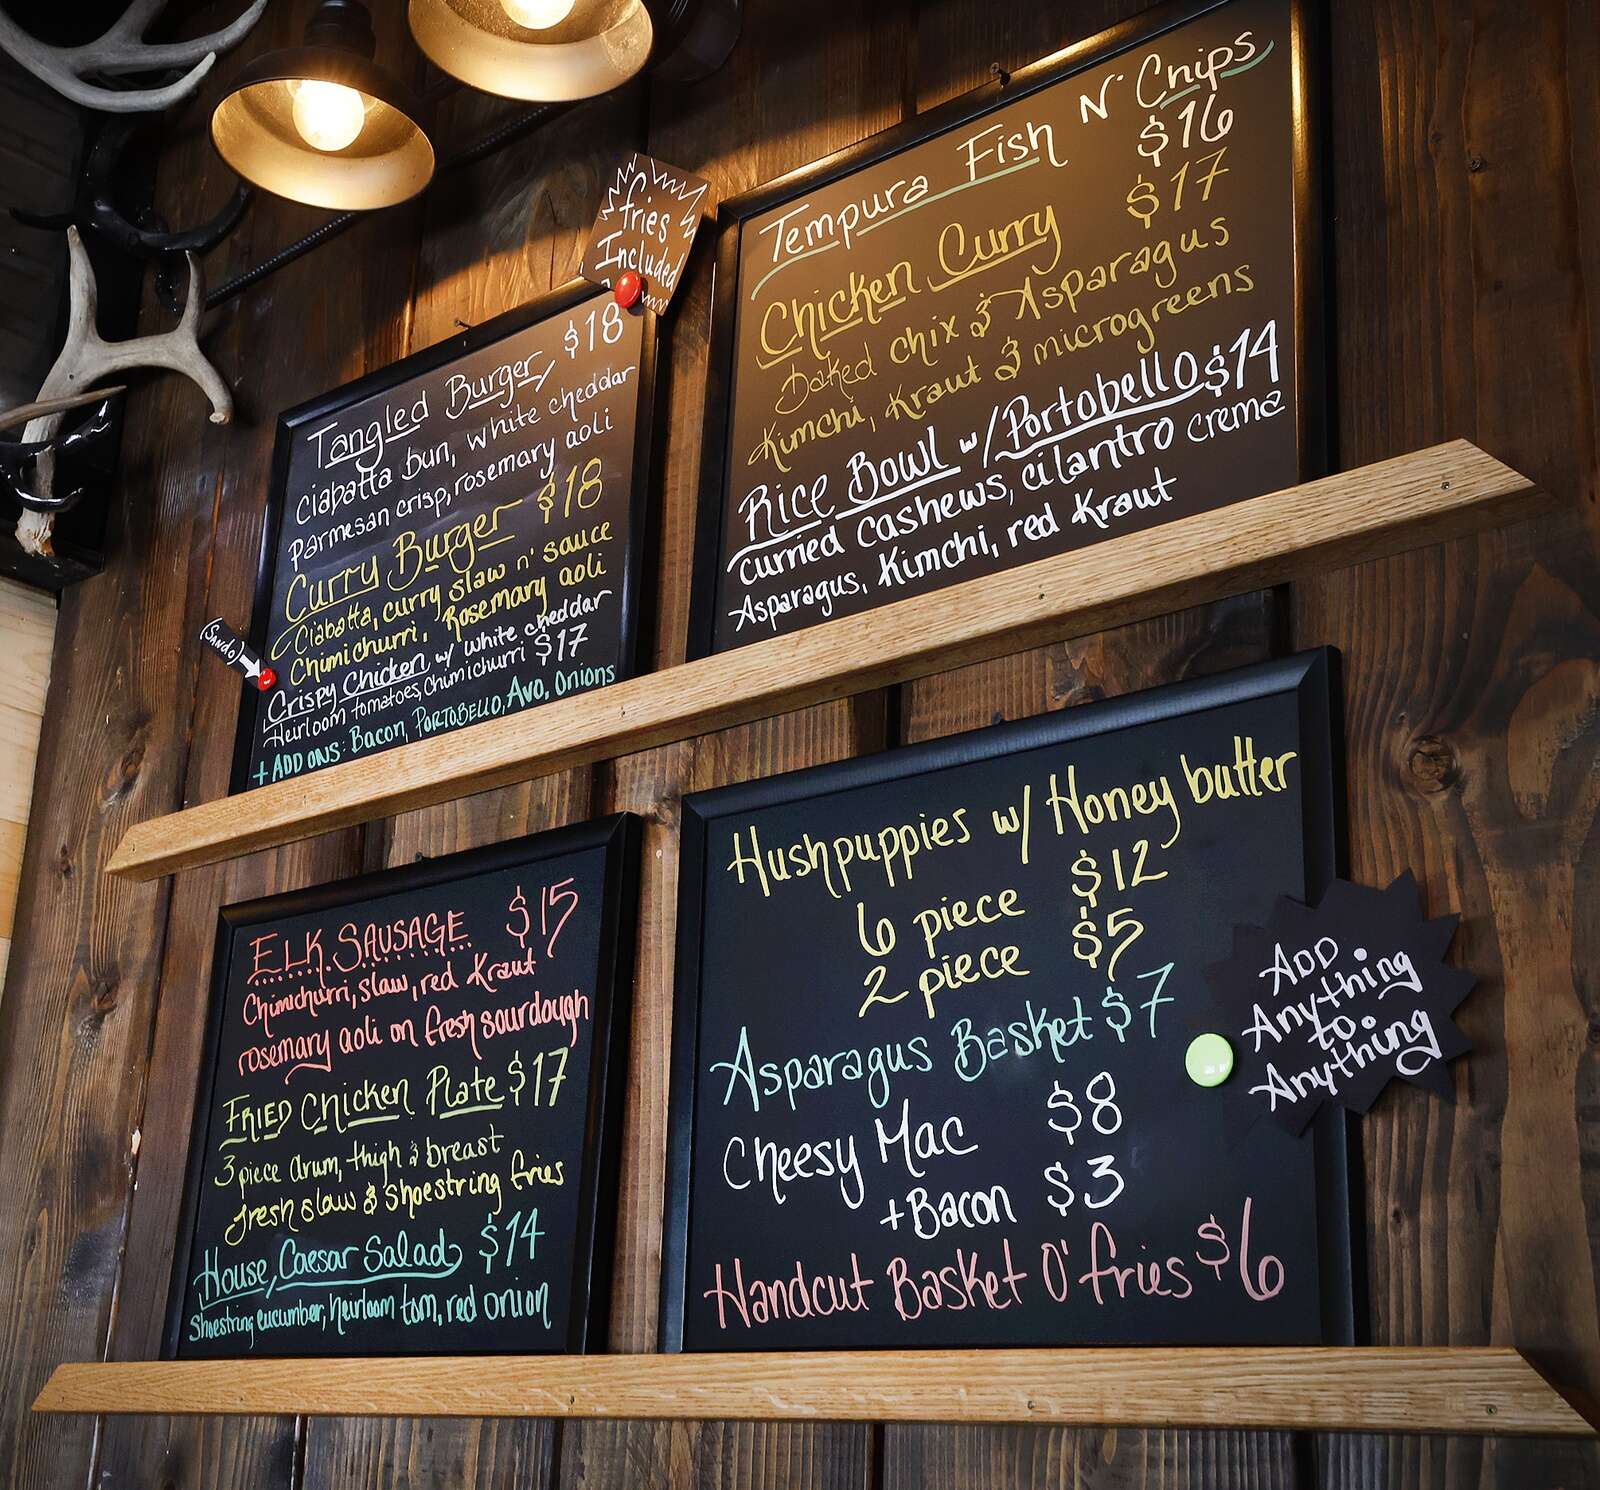 fries
Included
Tangled Burger $18
Ciabatta bun, white cheddar
Parmesan crisp, rosemary aoli
Curry Burger $18
Ciabatta, curry slaw n' sauce
Chimichurri, Rosemary aoli
(Sando)
Crispy Chicken w/ white cheddar
Heirloom tomatoes, Chimichurri $17
+ ADD ONS: Bacon, PORTOBELLO, Avo, Onions
Tempura Fish N' Chips
$16
Chicken Curry $17
Baked chix & Asparagus
Kimchi, Kraut & microgreens
Rice Bowl w/ Portobello $14
curried cashews, cilantro crema
Asparagus, Kimchi, red Kraut
ELK SAUSAGE $15
Chimichurri, slaw, red Kraut
rosemary aoli on fresh sourdough
FRIED Chicken Plate $17
3 piece drum, thigh & breast
fresh slaw & shoestring fries
House, Caesar Salad $14
Shoestring cucumber, heirloom tom, red onion
Hushpuppies w/ Honey butter
6 piece $12
2 piece $5
Asparagus Basket $7
Cheesy Mac $8
+Bacon $3
Handcut Basket O' fries $6
ADD
Anything
to
Anything